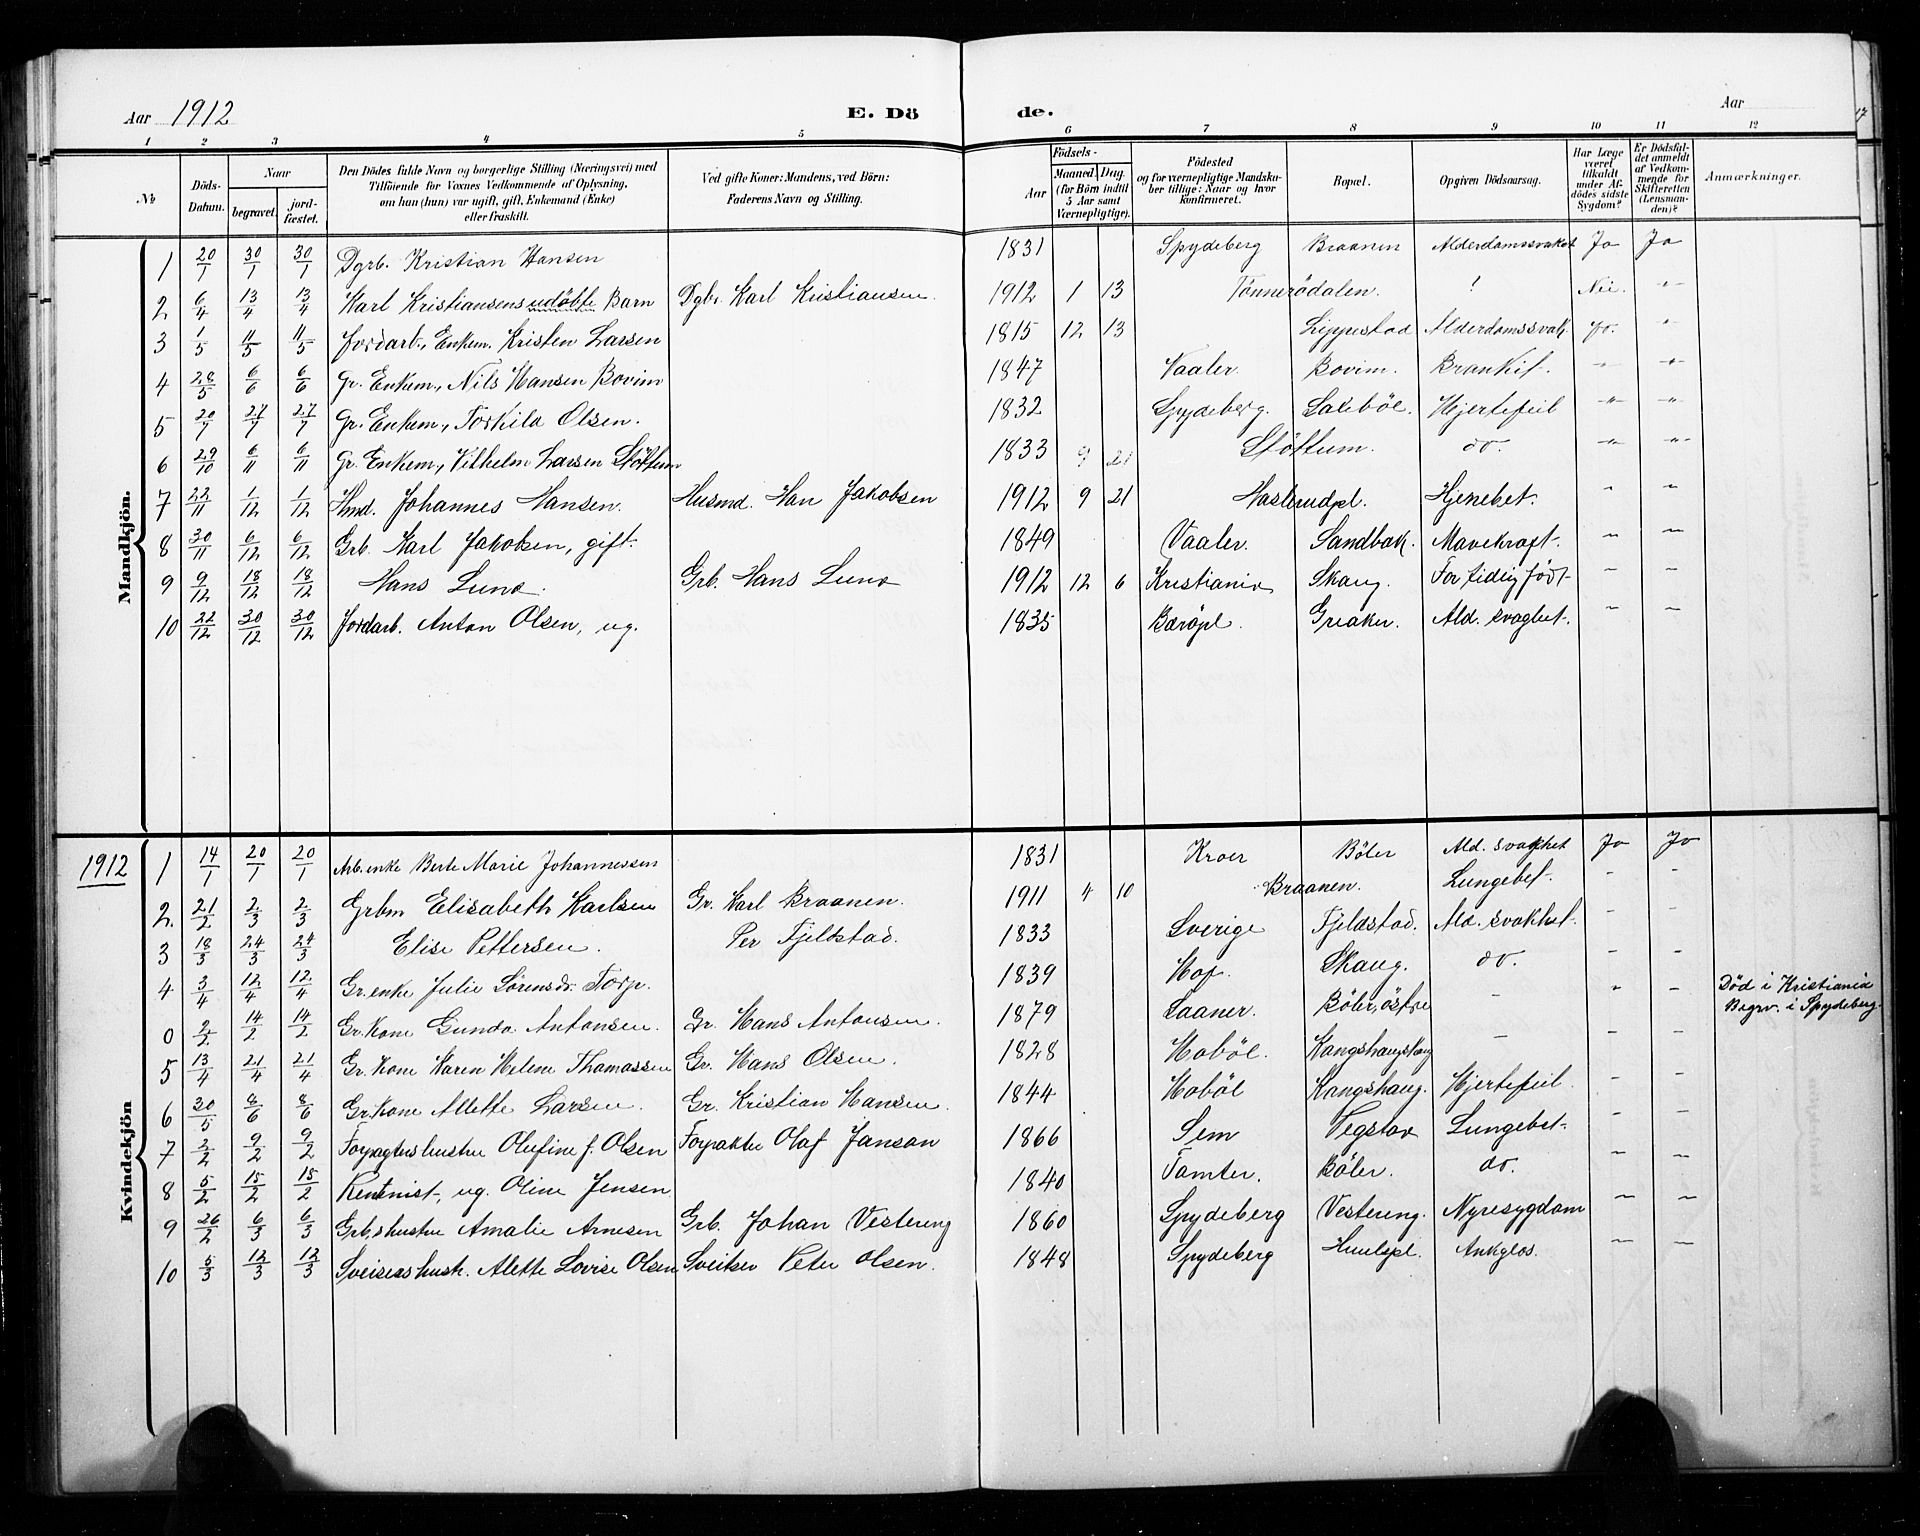 Aar 1912 E. Döde. Aar
1 2 3 4 5 6 7 8 9 10 11 12
17
No
Döds-Datum.
Naar
begravet.
jordfæstet.
Den Dödes fulde Navn og borgerlige Stilling (Næringsvei) med
Tilföiende for Voxnes Vedkommende af Oplysning,
om han (hun) var ugift, gift, Enkemand (Enke)
eller fraskilt.
Ved gifte Koner: Mandens, ved Börn:
Faderens Navn og Stilling.
Födsels-
Aar
Maaned Dag
(for Börn indtil
5 Aar samt
Værnepligtige).
Födested
og for værnepligtige Mandskaber tillige: Naar og hvor
konfirmeret.
Bopæl.
Opgiven Dödsaarsag.
Har Læge
været
tilkaldt
under Afdödes sidste
Sygdom?
Er Dödsfaldet anmeldt
af Vedkommende for
Skifteretten
(Lensmanden)?
Anmærkninger.
Mandkjön.
1 20/1 30/1 30/1 Dgrb. Kristian Hansen 1831 Spydeberg Braanen Alderdomssvakhet Ja Ja
2 6/4 13/4 13/4 Karl Kristiansens udöbte Barn Dgbr. Karl Kristiansen. 1912 1 13 Tönnerödalen. ! Nei. -"-
3 1/5 11/5 11/5 Jordarb., Enkem. Kristen Larsen 1815 12 13 Lippestad Alderdomssvak. Jo. "
4 28/5 6/6 6/6 Gr. Enkem., Nils Hansen Bovim 1847 Vaaler. Bovim. Bronkit. -"- -"-
5 20/7 27/7 27/7 Gr. Enkem., Torkild Olsen. 1832 Spydeberg. Sakeböl. Hjertefeil -"- -"-
6 29/10 6/11 6/11 Gr. Enkem., Vilhelm Larsen Stöttum 1833 9 21 Stöttum. do. -"- -"-
7 22/11 1/12 1/12 Hmd. Johannes Hansen. Husmd. Han Jakobsen 1912 9 21 Haslerudpl. Hjernebet. " "
8 30/11 6/12 6/12 Grb. Karl Jakobsen, gift. 1849 Vaaler. Sandbak. Mavekræft. - -
9 9/12 18/12 18/12 Hans Lund. Grb. Hans Lund 1912 12 6 Kristiania Skaug. For tidlig födt - -
10 22/12 30/12 30/12 Jordarb. Anton Olsen, ug. 1835 Greaker. Ald. svaghet. - -
1912
Kvindekjön
1 14/1 20/1 20/1 Arb. enke Berte Marie Johannessen 1831 Kroer Böler Ald. svakhet Ja Ja
2. 21/2 2/3 2/3 Grbm Elisabeth Karlsen Gr. Karl Braanen. 1911 4 10 Braanen. Lungebet. - -
3 18/3 24/3 24/3 Elise Pettersen. Per Fjeldstad. 1833 Sverige Fjeldstad. Ald. svakhet. - -
4 3/4 12/4 12/4 Gr. enke Julie Sörensdr. Torp. 1839 Hof. Skaug. do. - -
0 2/2 14/2 14/2 Gr. Kone Gunda Antonsen. Gr. Hans Antonsen. 1879 Saaner. Böler, östre - " - Död i Kristiania
Begrv. i Spydeberg.
5 13/4 21/4 21/4 Gr. Kone Karen Helene Thomassen Gr. Hans Olsen. 1828 Hoböl. - - -
6 30/5 8/6 8/6 Gr. Kone Alette Larsen. Gr. Kristian Hansen. 1844 Hoböl Kongshaug. Hjertefeil. - -
7 2/2 9/2 9/2 Forpagtershustru Olufine J. Olsen Forpakter Olaf Janson 1866 Sem Vegstad Lungebet. - -
8 5/2 15/2 15/2 Rentenist, ug. Oline Jensen 1840 Tomter. Böler. do. - -
9 26/2 6/3 6/3 Grb,shustru Amalie Arnesen Grb. Johan Vestereng 1860 Spydeberg Vestereng. Nyresygdom - -
10 5/3 12/3 12/3 Sveisershustr. Alette Lovise Olsen Sveitser Peter Olsen. 1848 Spydeberg - -